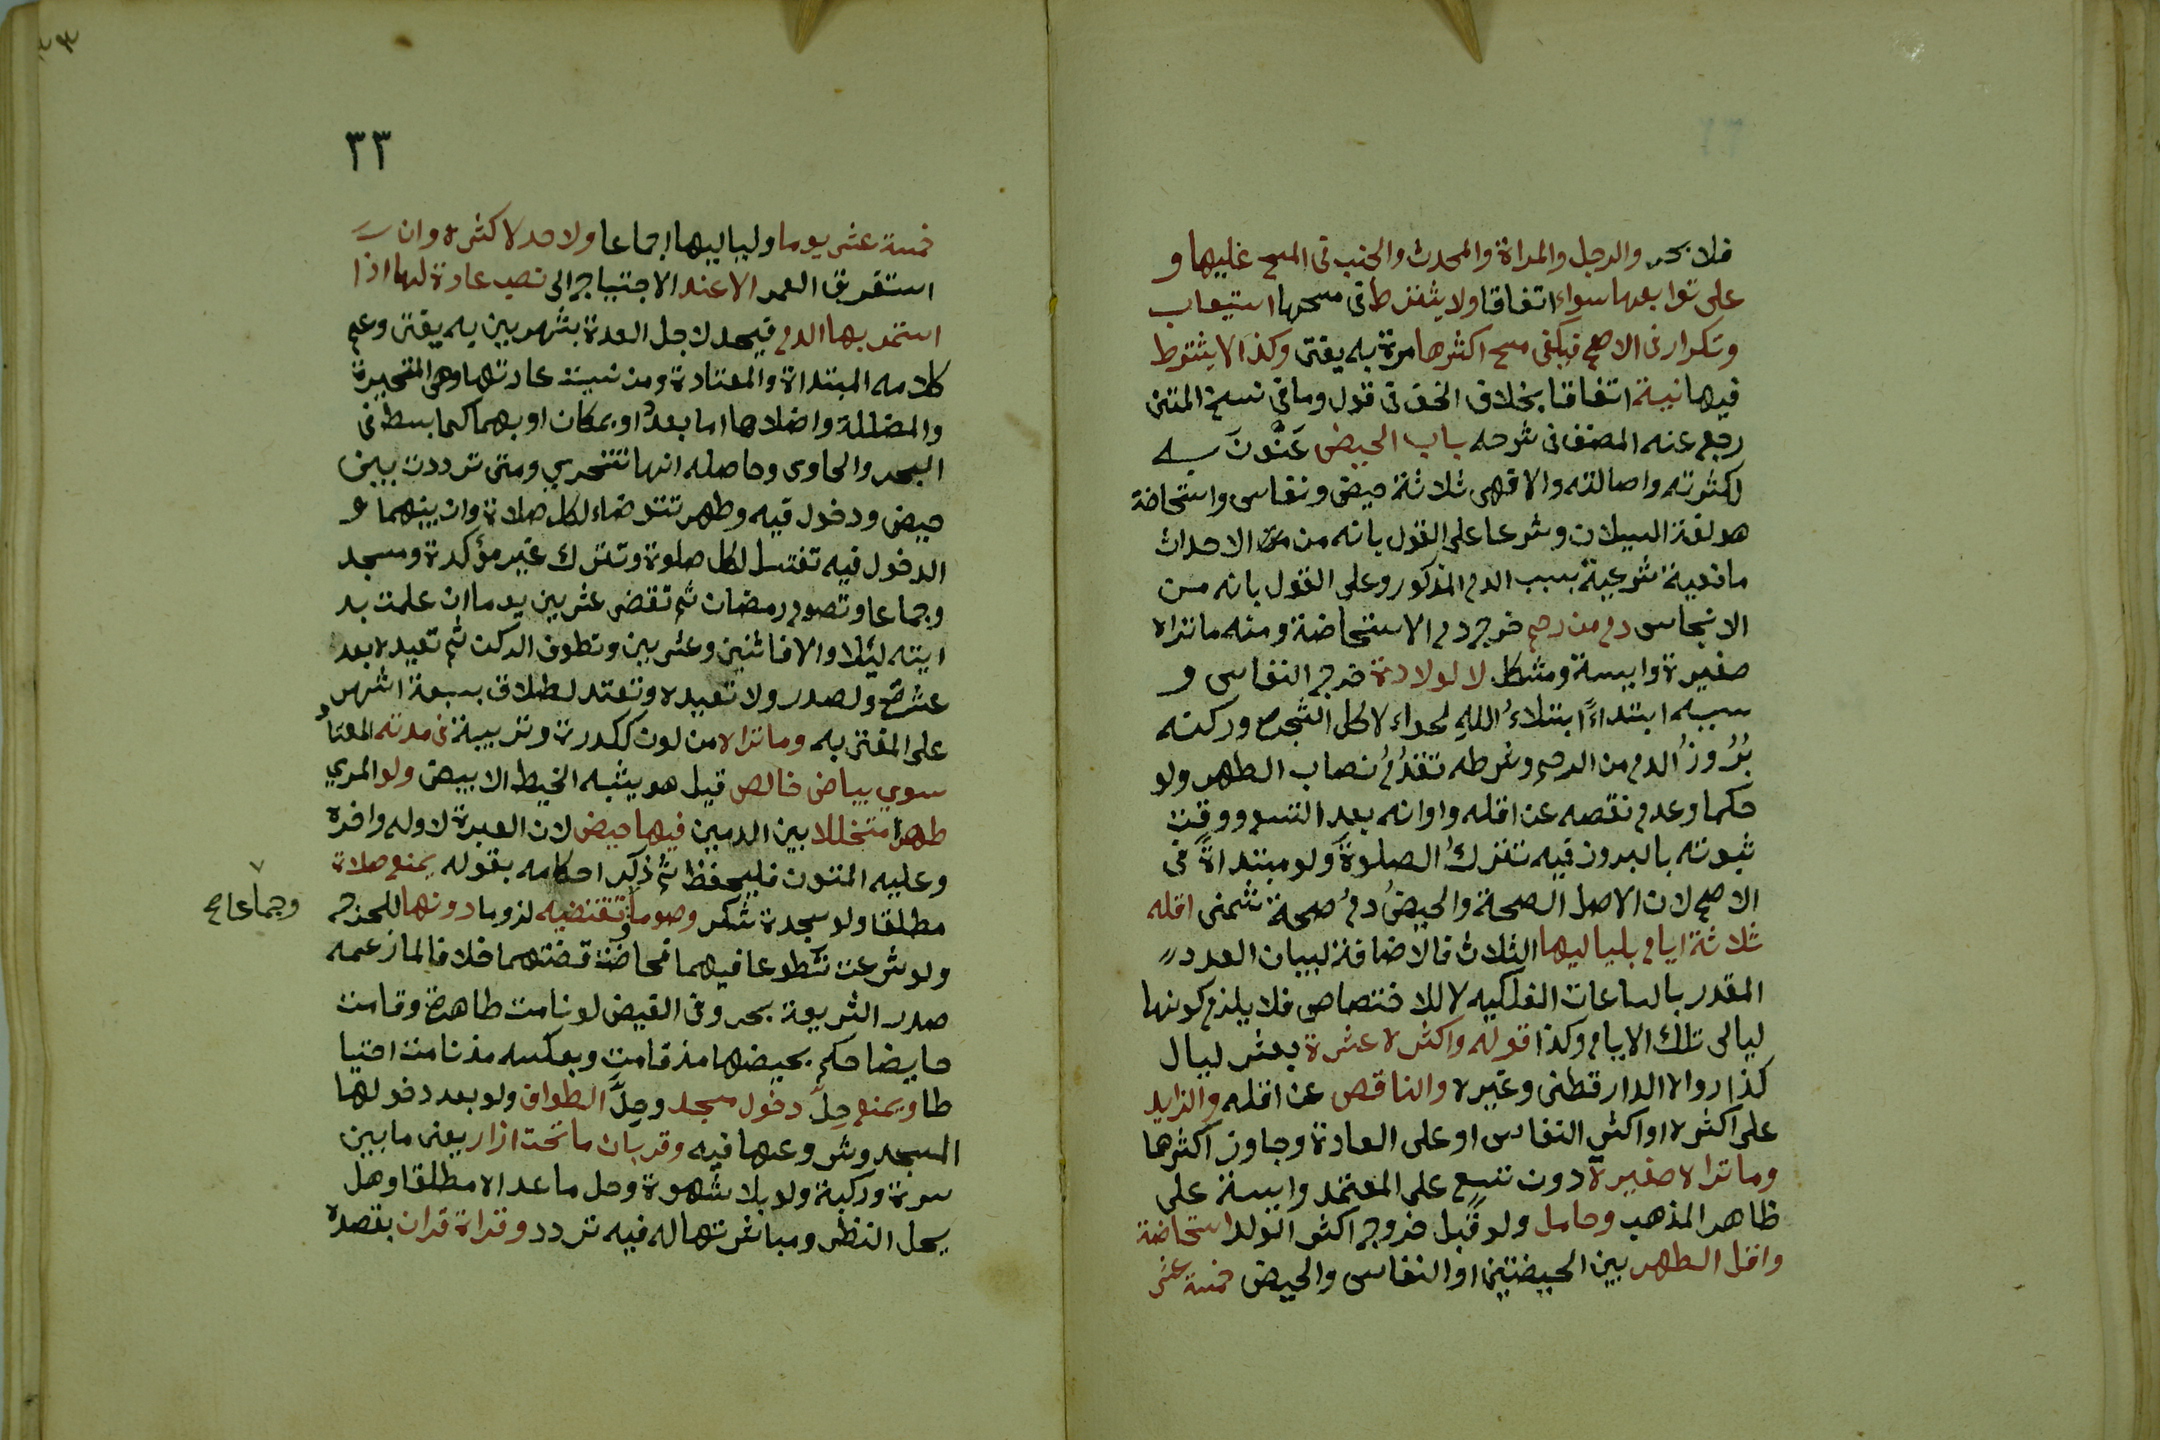 فلا بحر والرجل والمراة والمحدث والجنب فى المسح عليها و
على توابعها سواء اتفاقا ولا يشترط فى مسحها استيعاب
وتكرار فى الاصح فيكفى مسح اكثرها مرة به يفتى وكذا لا يشترط
فيها نية اتفاقا بخلاف الخف فى قول وما فى نسخ المتن
رجع عنه المصنف فى شرحه باب الحيض عَنْوَنَ به
لكثرته واصالته والا فهى ثلاثة حيض ونفاس واستحاضة
هو لغة السيلان وشرعا على القول بانه من الاحداث
مانعية شرعية بسبب الدم المذكور وعلى القول بانه من
الانجاس دم من رحم خرج دم الاستحاضة ومنه ما تراه
صغيرة وايسة ومشكل لا لولادة خرج النفاس و
سببه ابتداءً ابتلاءُ اللهِ لحواء لاكل الشجرة وركنه
بُرُوزُ الدم من الرحم وشرطه تقدُمُ نصاب الطهر ولو
حكما وعدم نقصه عن اقله واوانه بعد التسع ووقت
ثبوته بالبروز فيه تتركُ الصلوةَ ولو مبتداةً فى
الاصح لان الاصل الصحة والحيضُ دمُ صحة شمنى اقله
ثلاثة ايام بلياليها الثلاث فالاضافة لبيان العدد
المقدر بالساعات الفلكيه لا للاختصاص فلا يلزم كونها
ليالى تلك الايام وكذا قوله واكثره عشرة بعشر ليال
كذا رواه الدار قطنى وغيره والناقص عن اقله والزايد
على اكثره او اكثر النفاس او على العادة وجاوز اكثرها
وما تراه صغيرة دون تسع على المعتمد وايسة على
ظاهر المذهب وحامل ولو قبل خروج اكثر الولد استحاضة
واقل الطهر بين الحيضتين او النفاس والحيض خمسة عشر
٣٣
خمسة عشر يوما ولياليها اجماعا ولا حد لاكثره وان
استغرق العمر الا عند الاحتياج الى نصب عادة لها اذا
استمر بها الدم فيحد لاجل العدة بشهرين به يفتى وعم
كلامه المبتداة والمعتادة ومن نسيت عادتها وهى المتحيرة
والمضللة واضلالها اما بعدد او بمكان او بهما كما بسط فى
البحر والحاوى وحاصله انها تتحرى ومتى ترددت بين
حيض ودخول فيه وطهر تتوضاء لكل صلاة وان بينهما و
الدخول فيه تغتسل لكل صلوة وتترك غير مؤكدة ومسجد
وجماعا وتصوم رمضان ثم تقضى عشرين يوما ان علمت بد
ايته ليلا والا فاثنين وعشرين وتطوف الركن ثم تعيده بعد
عشرة ولصدر ولا تعيده وتعتد لطلاق بسبعة اشهر
على المفتى به وما تراه من لون ككدرة وتربية فى مدته المعتاد
سوى بياض خالص قيل هو يشبه الخيط الابيض ولو المرى
طهرا متخللا بين الدمين فيها حيض لان العبرة لاوله واخره
وعليه المتون فليحفظ ثم ذكر احكامه بقوله يمنع صلاة
مطلقا ولو سجدة شكر وصوما وتقضيه لزوما دونها للحرج
وجماعا صح
ولو شرعت تطوعا فيهما فحاضت قضتهما خلافا لما زعمه
صدر الشريعة بحر وفى الفيض لو نامت طاهرة وقامت
حايضا حكم بحيضها مذ قامت وبعكسه مذ نامت احتيا
طا ويمنع حِلَّ دخول مسجد وحِلَّ الطواف ولو بعد دخولها
المسجد وشروعها فيه وقربان ما تحت ازار يعنى ما بين
سرة وركبة ولو بلا شهوة وحل ما عداه مطلقا وهل
يحل النظر ومباشرتها له فيه تردد وقراة قران بقصده